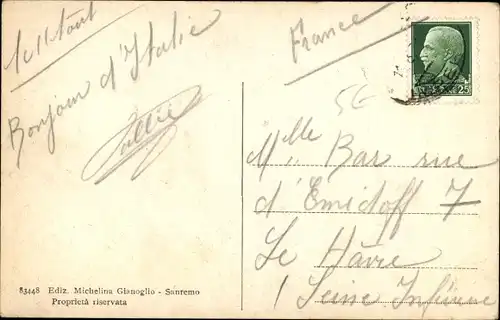 le 11 Août
Bonjour d'Italie
France
5F
Mlle Bar rue
d'Emidoff 7
Le Hâvre
Seine Inférieure
83448 Ediz. Michelina Gianoglio - Sanremo
Proprietà riservata
25